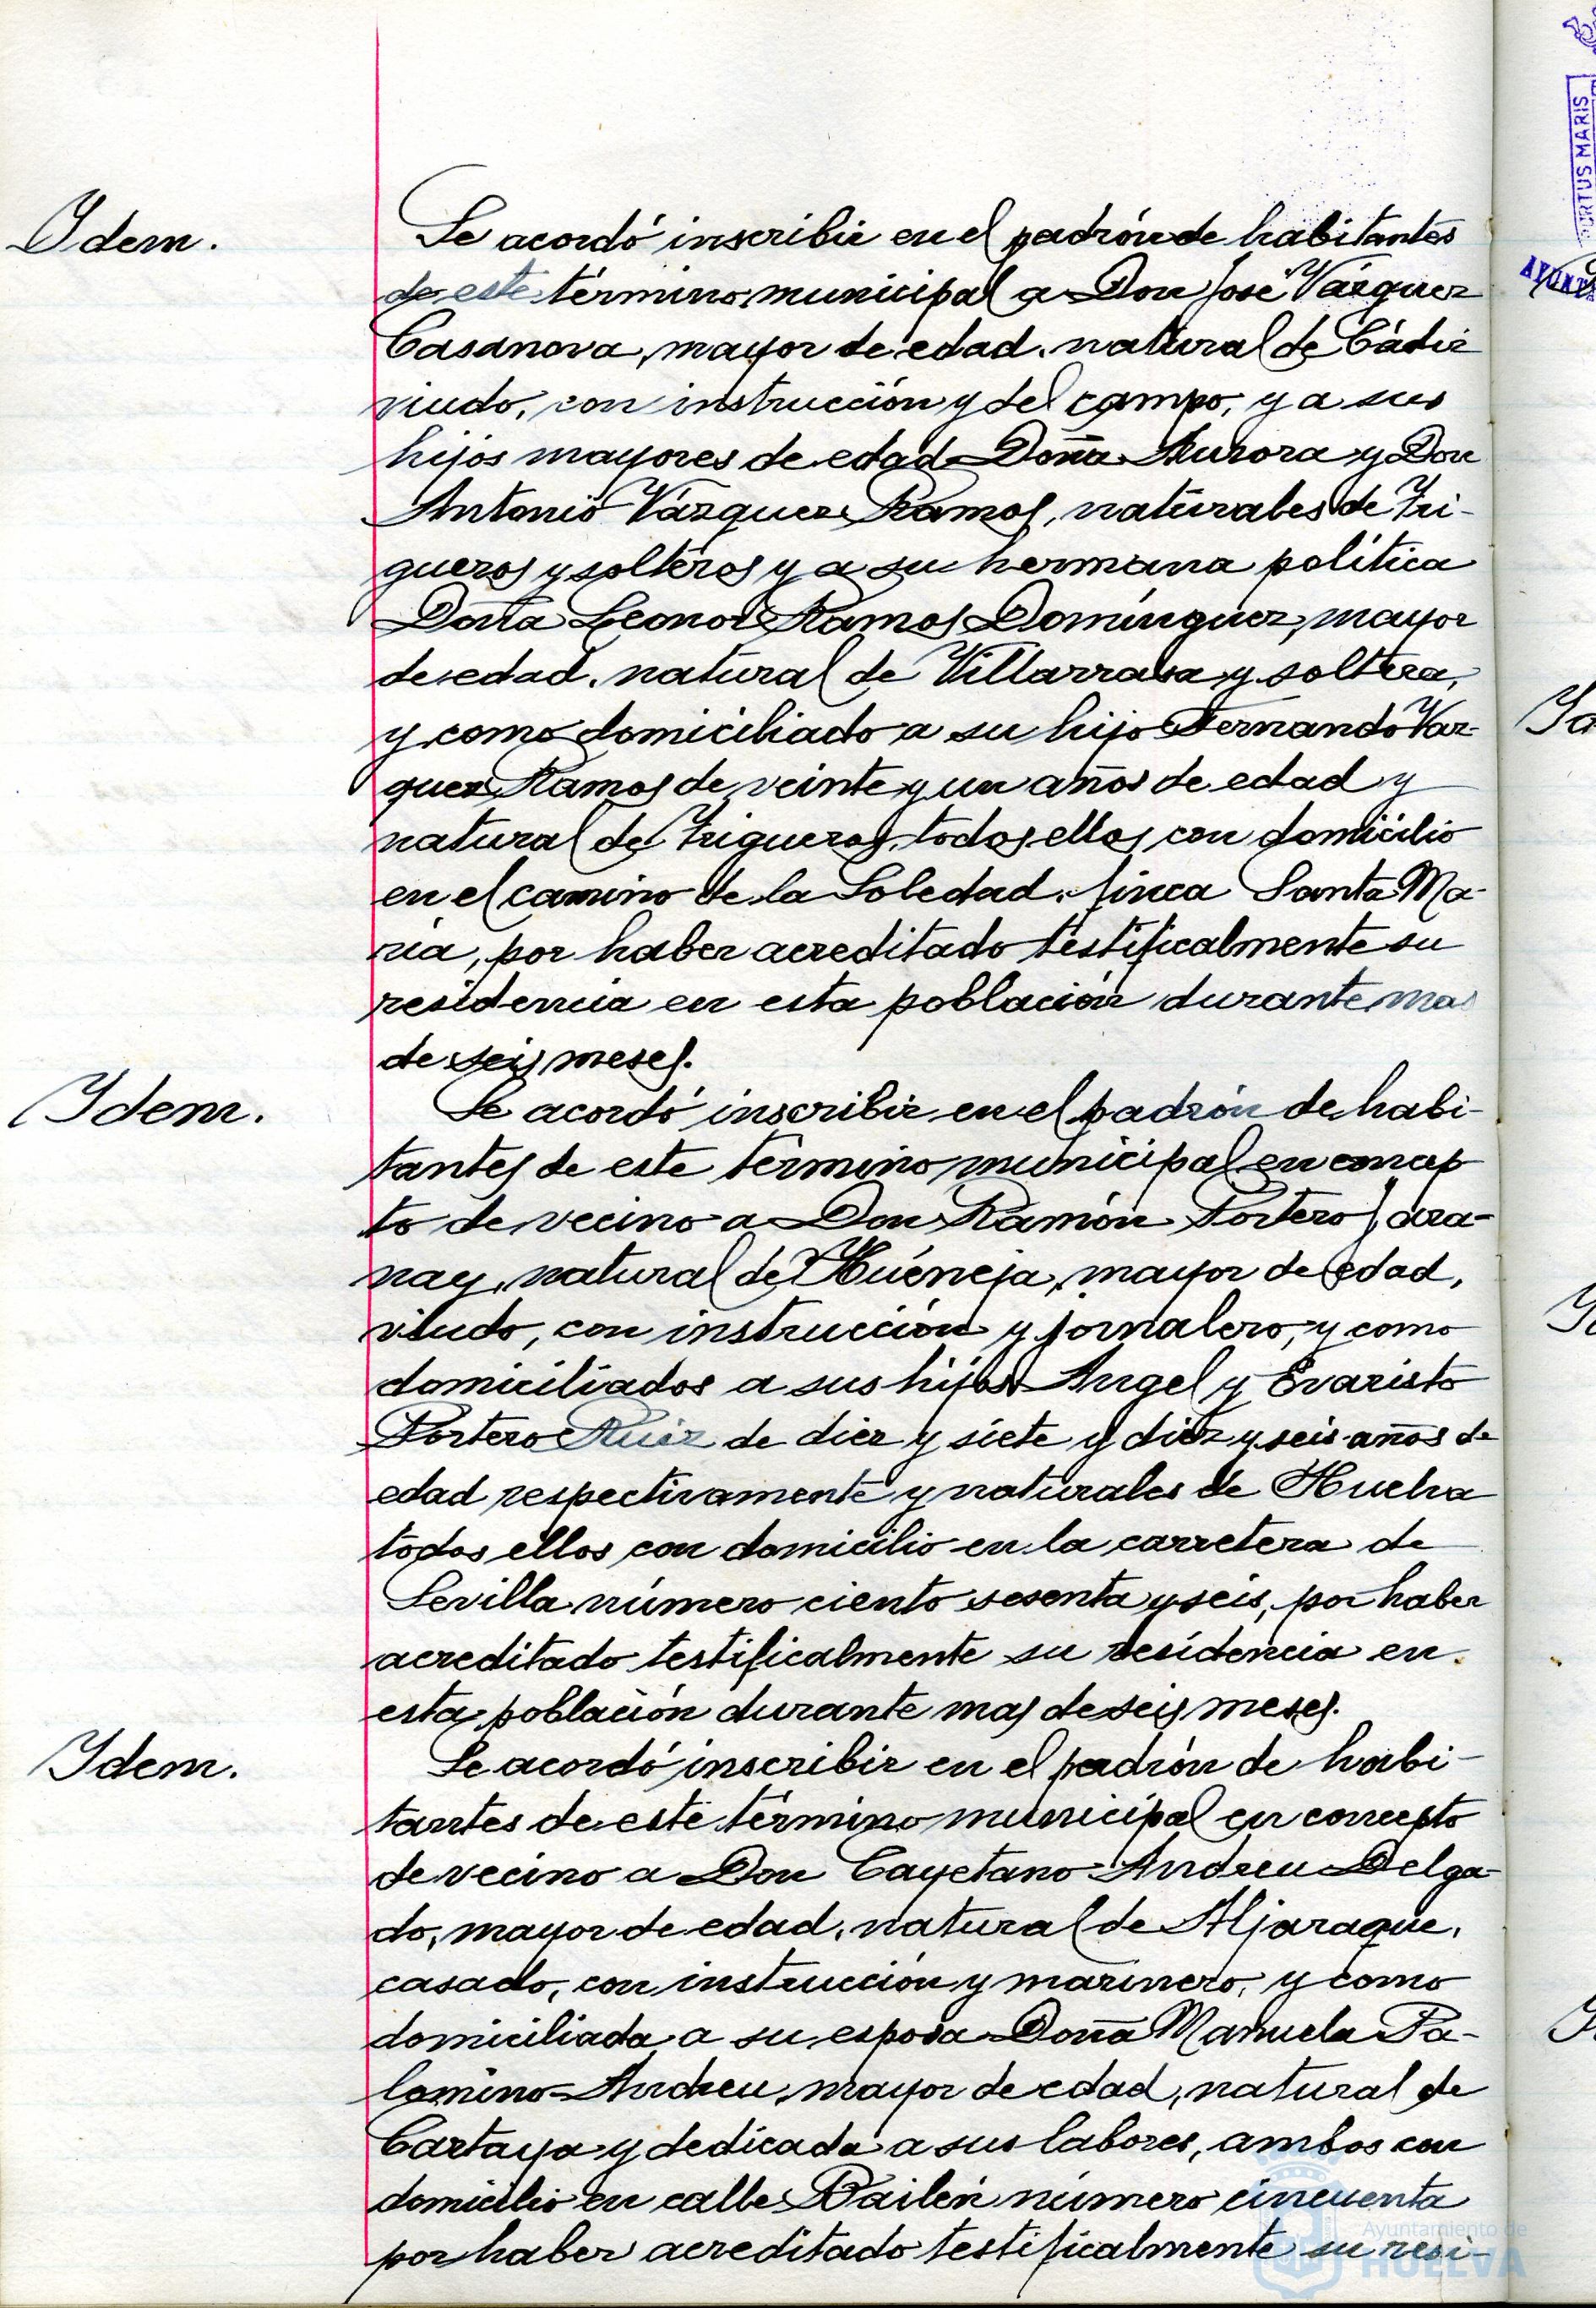 Idem.
Se acordó inscribir en el padrón de habitantes
de este término municipal a Don José Vázquez
Casanova, mayor de edad, natural de Cádiz
viudo, con instrucción y del campo, y a sus
hijos mayores de edad Doña Aurora y Don
Antonio Vázquez Ramos, naturales de Tri-
gueros y solteros y a su hermana politica
Doña Leonor Ramos Domínguez, mayor
de edad, natural de Villarrasa y soltera,
y como domiciliado a su hijo Fernando Váz-
quez Ramos de veinte y un años de edad y
natural de Trigueros, todos ellos con domicilio
en el camino de la Soledad, finca Santa Ma-
ría, por haber acreditado testificalmente su
residencia en esta población durante mas
de seis meses.
Idem.
Se acordó inscribir en el padrón de habi-
tantes de este término municipal en concep
to de vecino a Don Ramón Portero
nay, natural de Huéneja, mayor de edad,
viudo, con instrucción y jornalero, y como
domiciliados a sus hijos Angel y Evaristo
Portero Ruiz de diez y siete y diez y seis años de
edad respectivamente y naturales de Huelva
todos ellos con domicilio en la carretera de
Sevilla número ciento sesenta y seis, por haber
acreditado testificalmente su residencia en
esta población durante mas de seis meses.
Idem.
Se acordó inscribir en el padrón de habi-
tantes de este término municipal en concepto
de vecino a Don Cayetano Andreu Delga-
do, mayor de edad, natural de Aljaraque,
casado, con instrucción y marinero, y como
domiciliada a su esposa Doña Manuela Pa-
lomino Andreu, mayor de edad, natural de
Cartaya y dedicada a sus labores, ambos con
domicilio en calle Bailén número cincuenta
por haber acreditado testificalmente su resi-
Ayuntamiento de
HUELVA